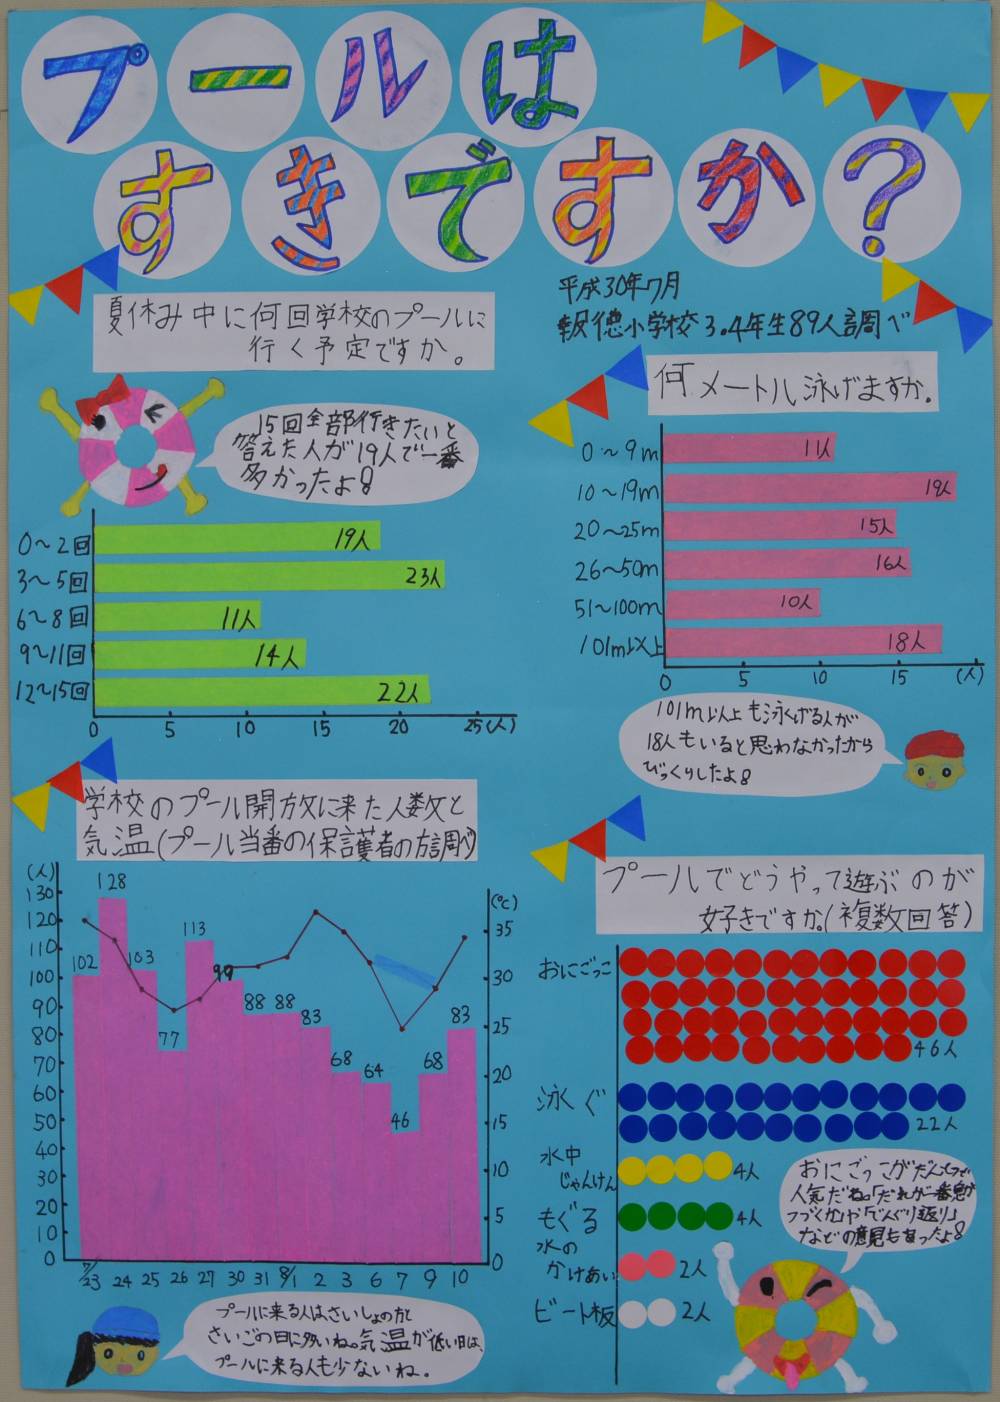 プールは
すきですか?
平成30年7月
報徳小学校3.4年生89人調べ
夏休み中に何回学校のプールに
行く予定ですか。
15回全部行きたいと
答えた人が19人で一番
多かったよ!
0〜2回
19人
3〜5回
23人
6〜8回
11人
9〜11回
14人
12〜15回
22人
0
5
10
15
20
25(人)
何メートル泳げますか。
0〜9m
11人
10〜19m
19人
20〜25m
15人
26〜50m
16人
51〜100m
10人
101m以上
18人
0
5
10
15
(人)
101m以上も泳げる人が
18人もいると思わなかったから
びっくりしたよ!
学校のプール開放に来た人数と
気温(プール当番の保護者の方調べ)
(人)
130
120
110
100
90
80
70
60
50
40
30
20
10
0
102
128
103
77
113
99
88
88
83
68
64
46
68
83
(℃)
35
30
25
20
15
10
5
0
7/23
24
25
26
27
30
31
8/1
2
3
6
7
9
10
プールに来る人はさいしょの方と
さいごの日に多いね。気温が低い日は、
プールに来る人も少ないね。
プールでどうやって遊ぶのが
好きですか。(複数回答)
おにごっこ
46人
泳ぐ
22人
水中
じゃんけん
4人
もぐる
4人
水の
かけあい
2人
ビート板
2人
おにごっこがだんとつで
人気だね。「だれが一番息が
つづくか」や「でんぐり返り」
などの意見もあったよ!